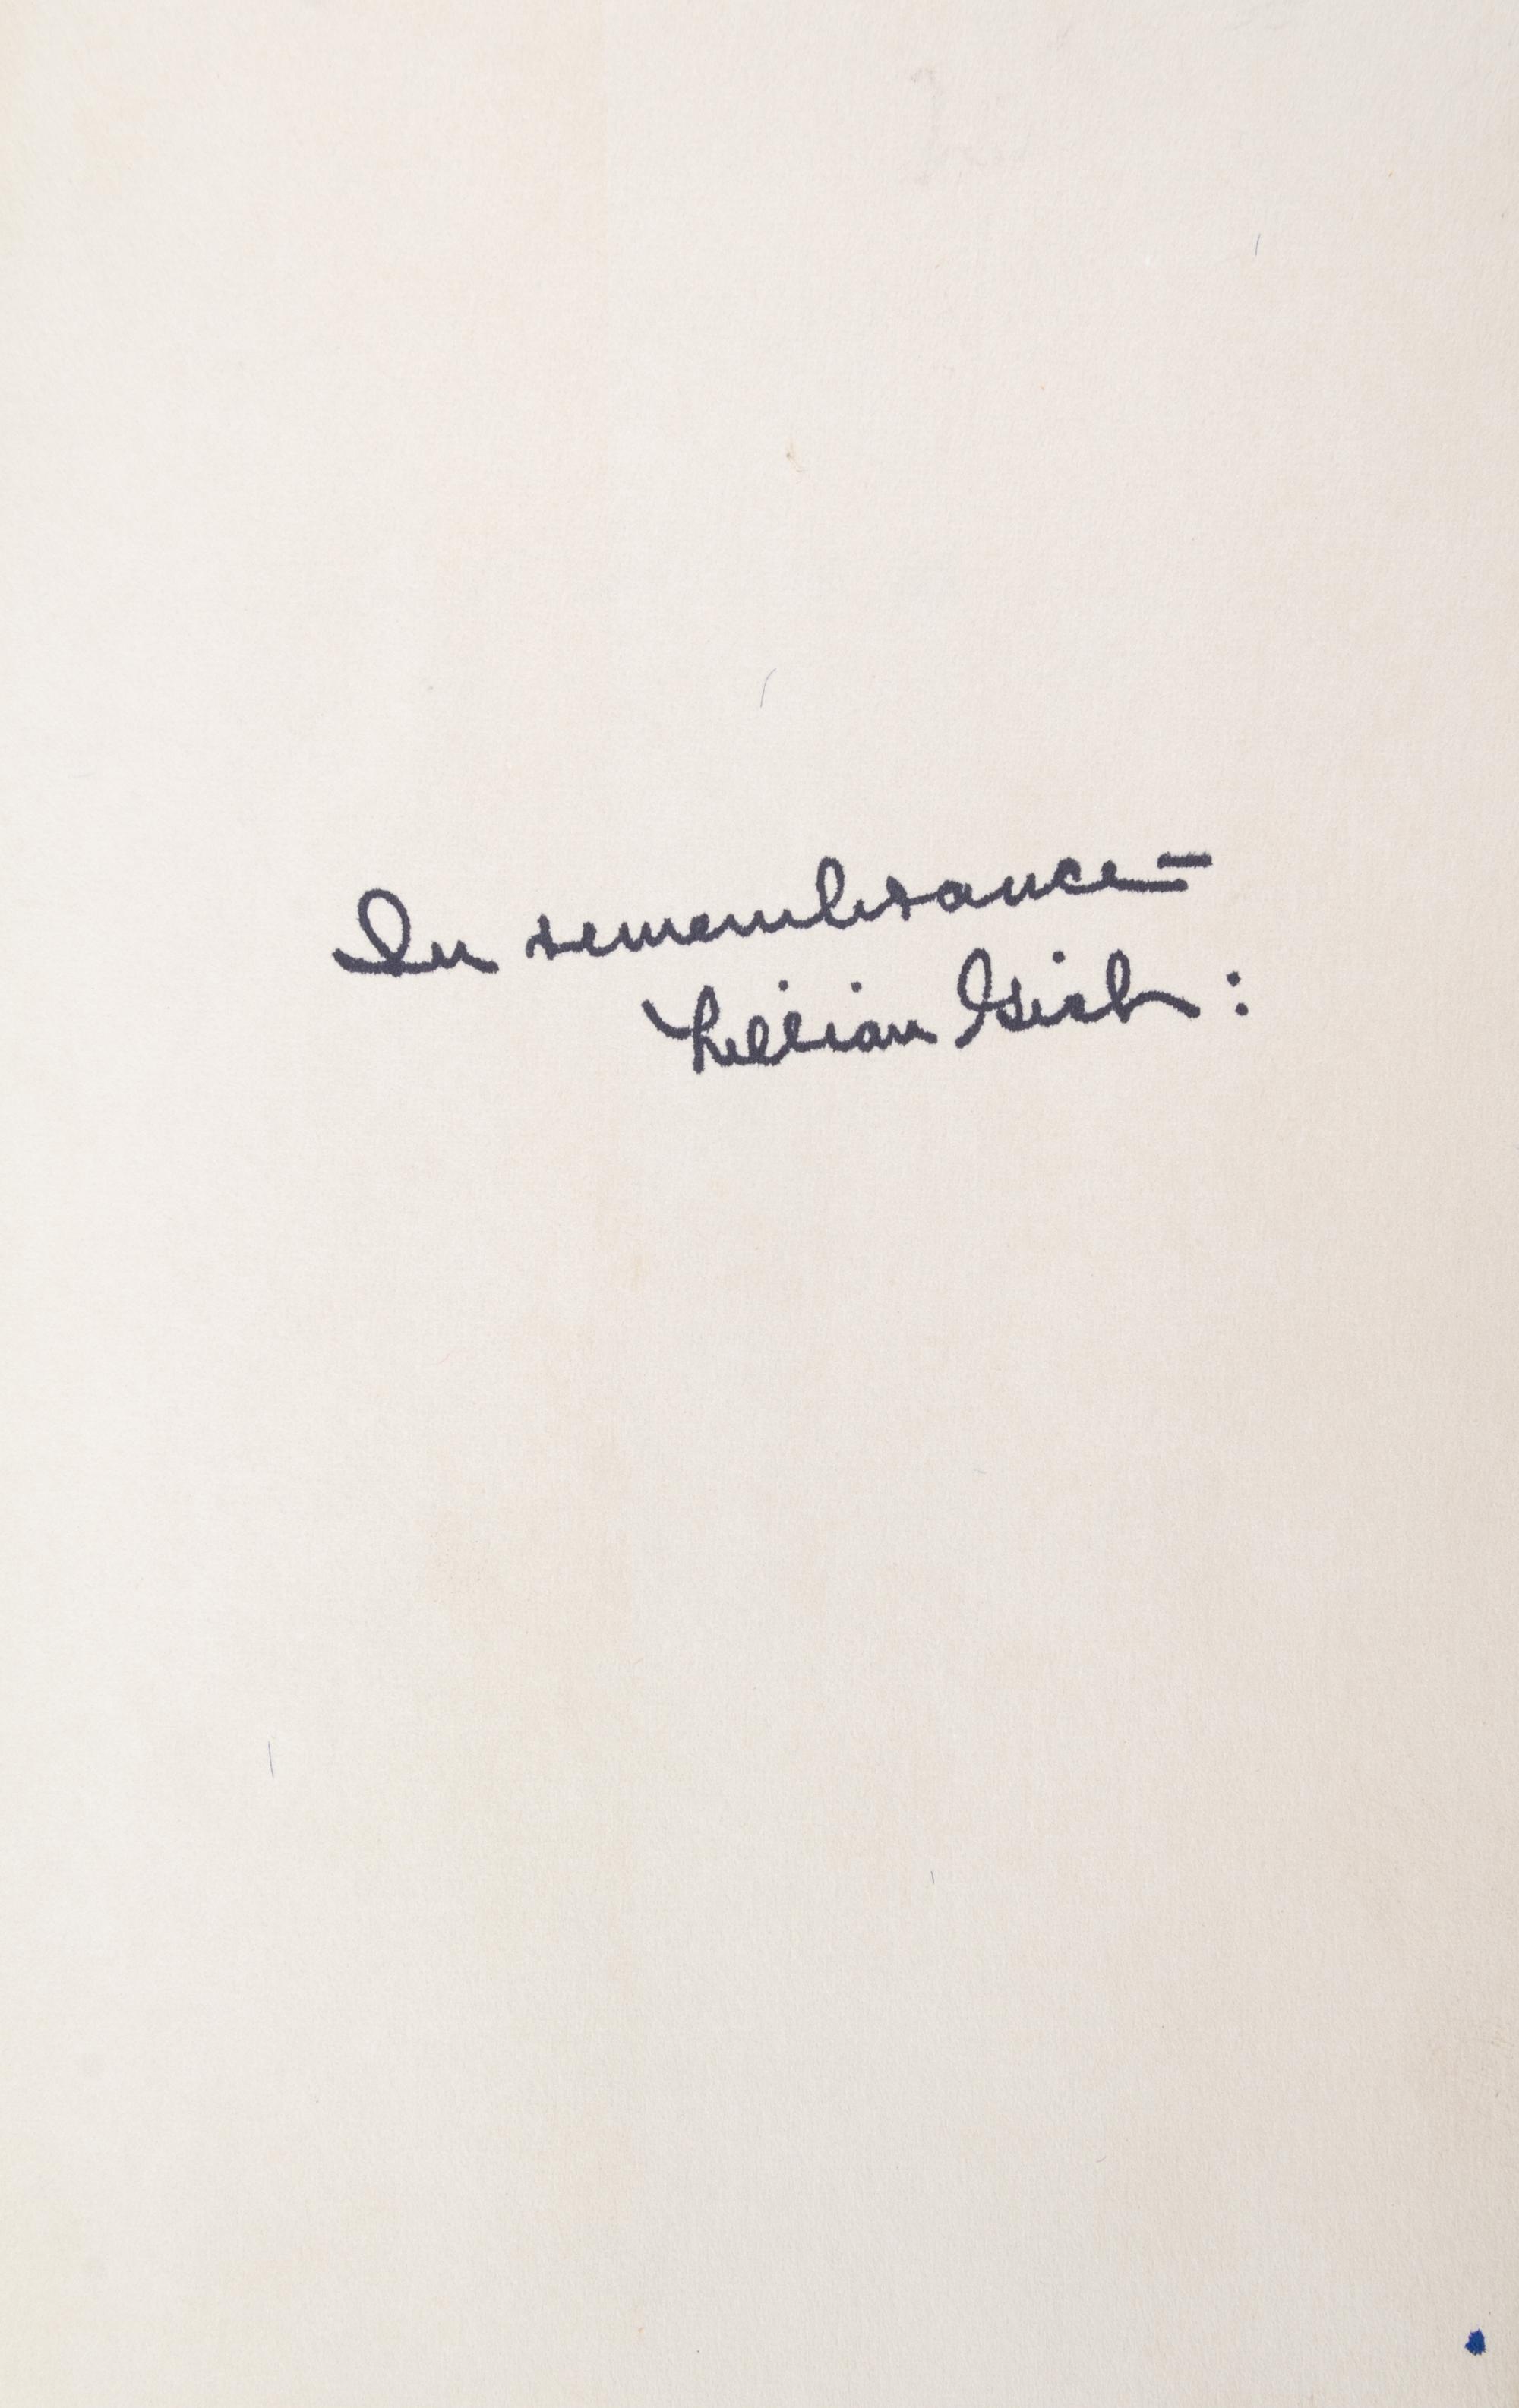 In remembrance -
Lillian Gish :